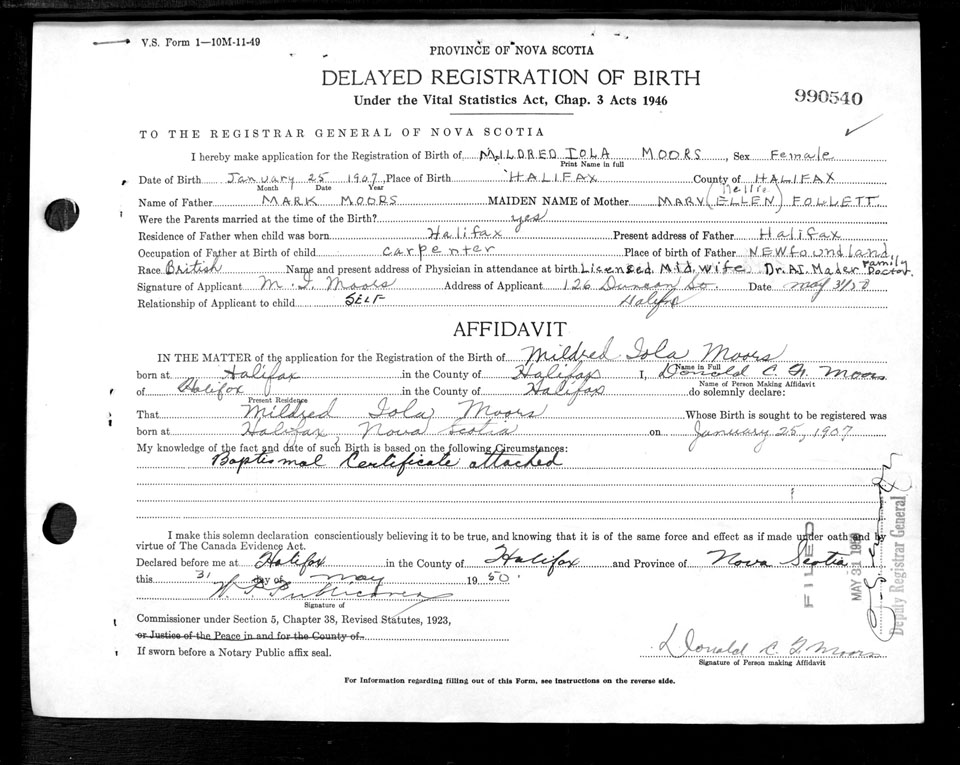 V.S. Form 1—10M-11-49
PROVINCE OF NOVA SCOTIA
DELAYED REGISTRATION OF BIRTH
Under the Vital Statistics Act, Chap. 3 Acts 1946
990540
TO THE REGISTRAR GENERAL OF NOVA SCOTIA
I hereby make application for the Registration of Birth of MILDRED IOLA MOORS, Sex Female
Print Name in full
Date of Birth January 25 1907, Place of Birth HALIFAX County of HALIFAX
Month Date Year
Name of Father MARK MOORS MAIDEN NAME of Mother MARY (Nellie) (ELLEN) FOLLETT
Were the Parents married at the time of the Birth? yes
Residence of Father when child was born Halifax Present address of Father Halifax
Occupation of Father at Birth of child carpenter Place of birth of Father NEWfoundland
Race British Name and present address of Physician in attendance at birth Licensed Mid. wife Dr. A.I. Mader Family Doctor.
Signature of Applicant M. I. Moors Address of Applicant 126 Duncan St. Halifax Date May 31/50
Relationship of Applicant to child SELF
AFFIDAVIT
IN THE MATTER of the application for the Registration of the Birth of Mildred Iola Moors
Name in Full
born at Halifax in the County of Halifax I, Donald C. G. Moors
Name of Person Making Affidavit
of Halifax in the County of Halifax do solemnly declare:
Present Residence
That Mildred Iola Moors Whose Birth is sought to be registered was
born at Halifax, Nova Scotia on January 25, 1907
My knowledge of the fact and date of such Birth is based on the following Circumstances:
Baptismal Certificate attached
I make this solemn declaration conscientiously believing it to be true, and knowing that it is of the same force and effect as if made under oath and by
virtue of The Canada Evidence Act.
Declared before me at Halifax in the County of Halifax and Province of Nova Scotia
this 31 day of May 1950
Signature of
Commissioner under Section 5, Chapter 38, Revised Statutes, 1923,
or Justice of the Peace in and for the County of
If sworn before a Notary Public affix seal.
Donald C. G. Moors
Signature of Person making Affidavit
For Information regarding filling out of this Form, see Instructions on the reverse side.
FILED
MAY 31 1950
Deputy Registrar General